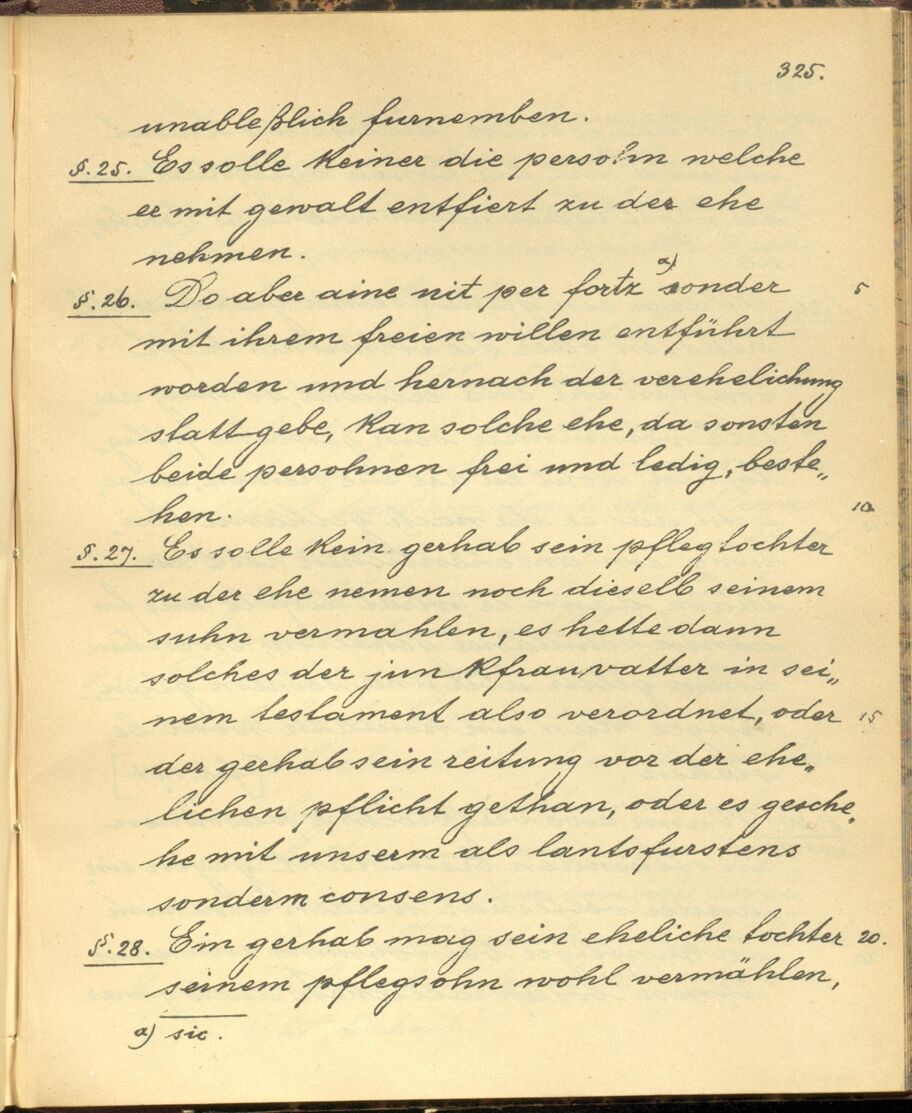 325.
unableßlich furnemben.
§.25. Es solle keiner die persohn welche
er mit gewalt entfiert zu der ehe
nehmen.
§.26. Do aber aine nit per fortz a) sonder 5
mit ihrem freien willen entführt
worden und hernach der verehelichung
statt gebe, kan solche ehe, da sonsten
beide persohnen frei und ledig, beste„
hen. 10
§.27. Es solle kein gerhab sein pflegtochter
zu der ehe nemen noch dieselb seinem
suhn vermahlen, es hette dann
solches der junkfrau vatter in sei„
nem testament also verordnet, oder 15
der gerhab sein reitung vor der ehe„
lichen pflicht gethan, oder es gesche„
he mit unserm als lantsfurstens
sonderm consens.
§.28. Ein gerhab mag sein eheliche tochter 20.
seinem pflegsohn wohl vermählen,
a) sic.